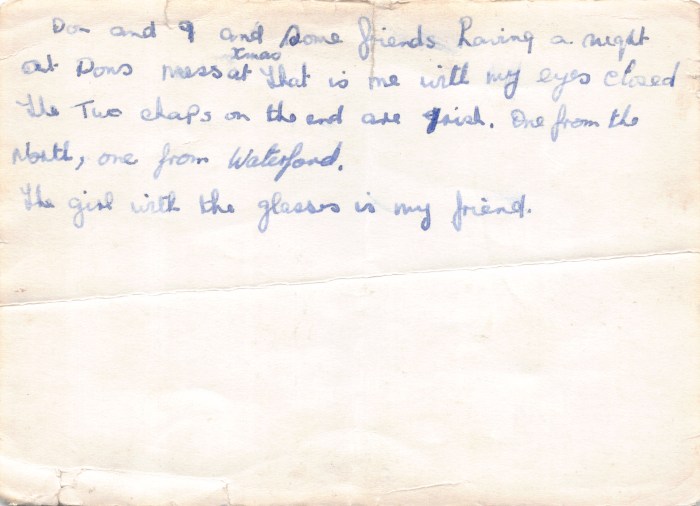 Don and I and some friends having a night
out Dons mess at Xmas That is me with my eyes closed
The Two chaps on the end are Irish. One from the
North, one from Waterford.
The girl with the glasses is my friend.